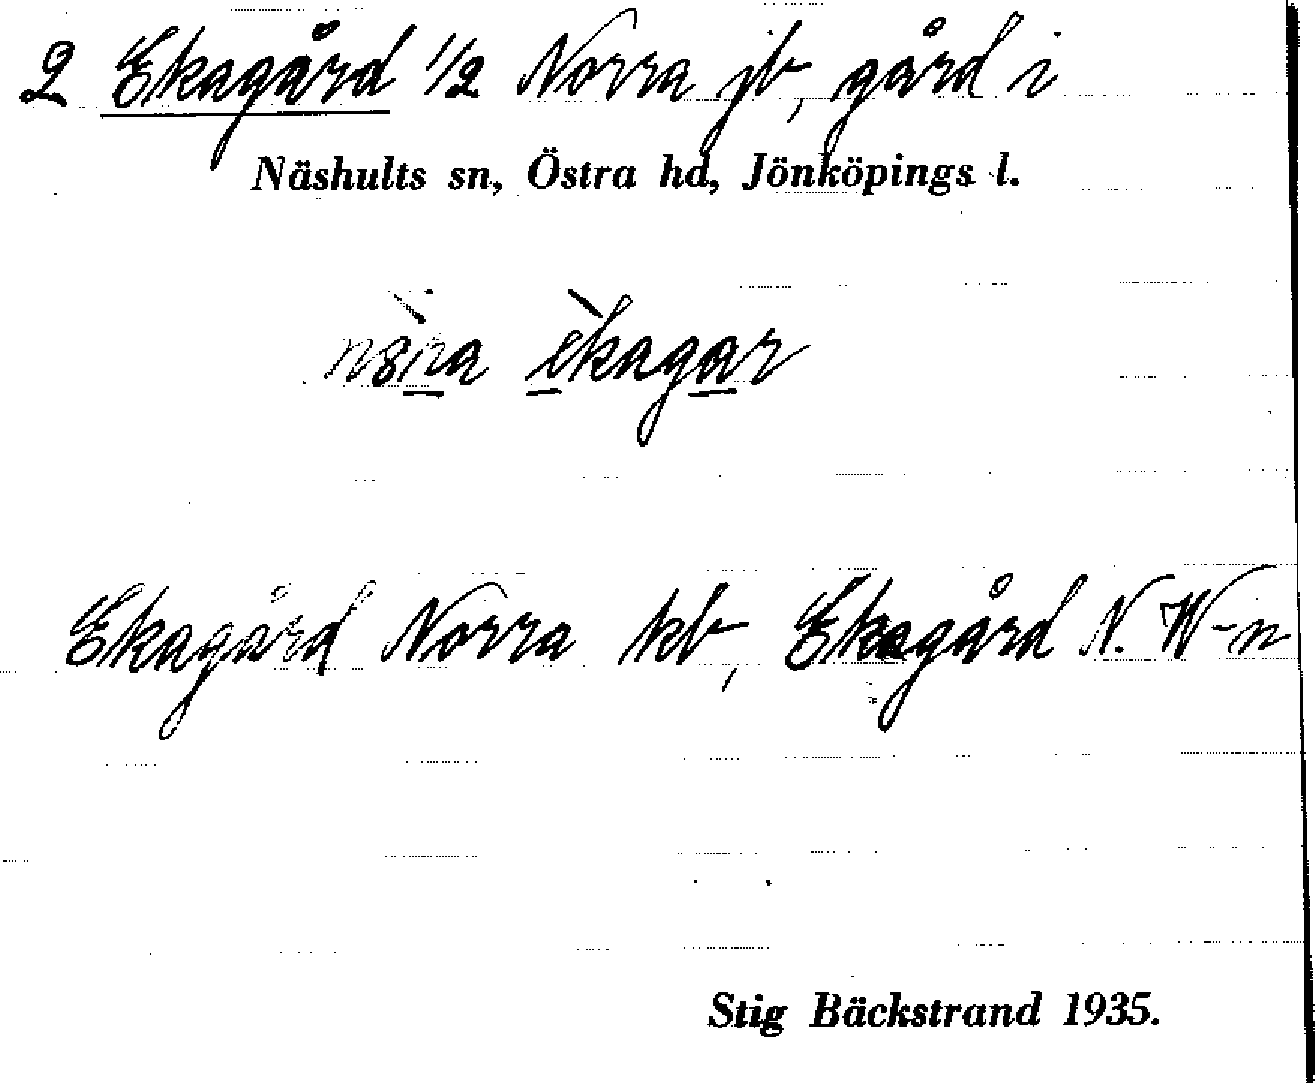 2 Ekagård 1/2 Norra jb, gård i
Näshults sn, Östra hd, Jönköpings l.
nòrra èkagar
Ekagård Norra kb, Ekagård N. W-n
Stig Bäckstrand 1935.